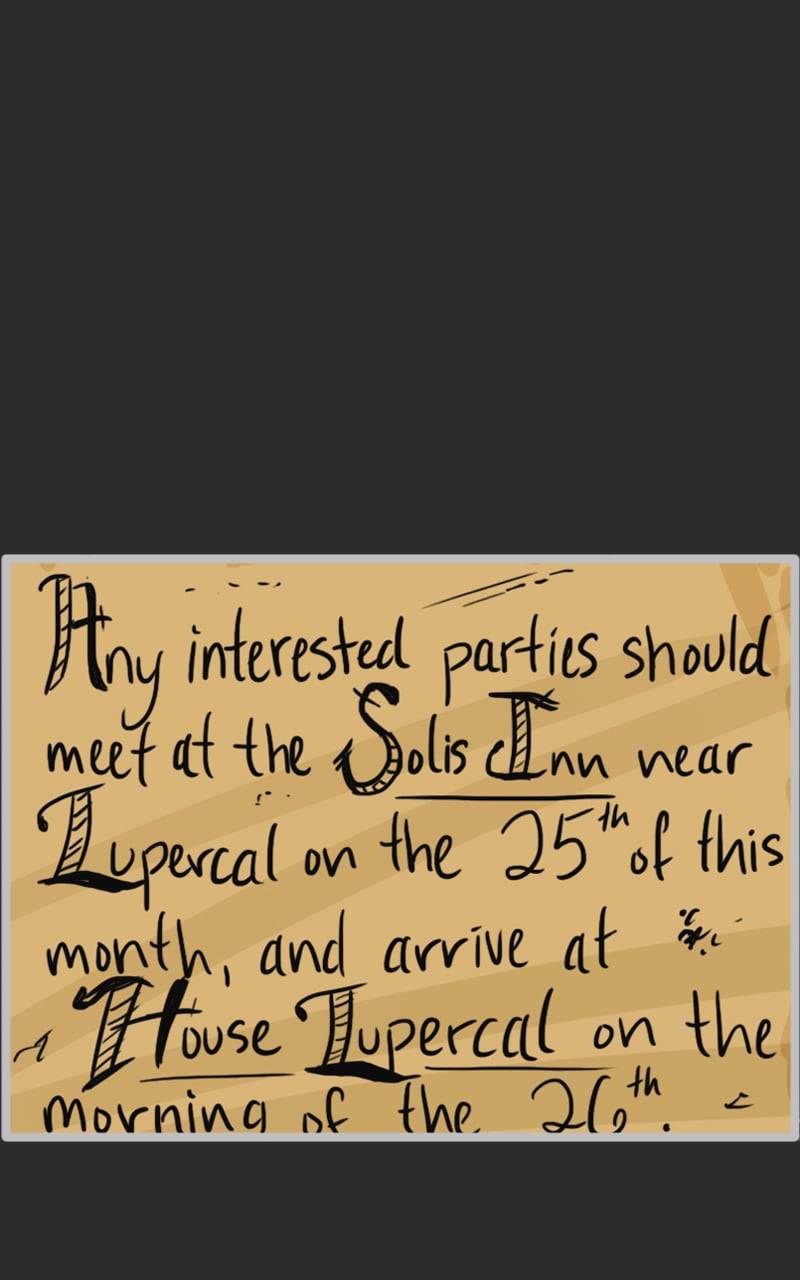 Any interested parties should
meet at the Solis Inn near
Lupercal on the 25th of this
month, and arrive at
House Lupercal on the
morning of the 26th.